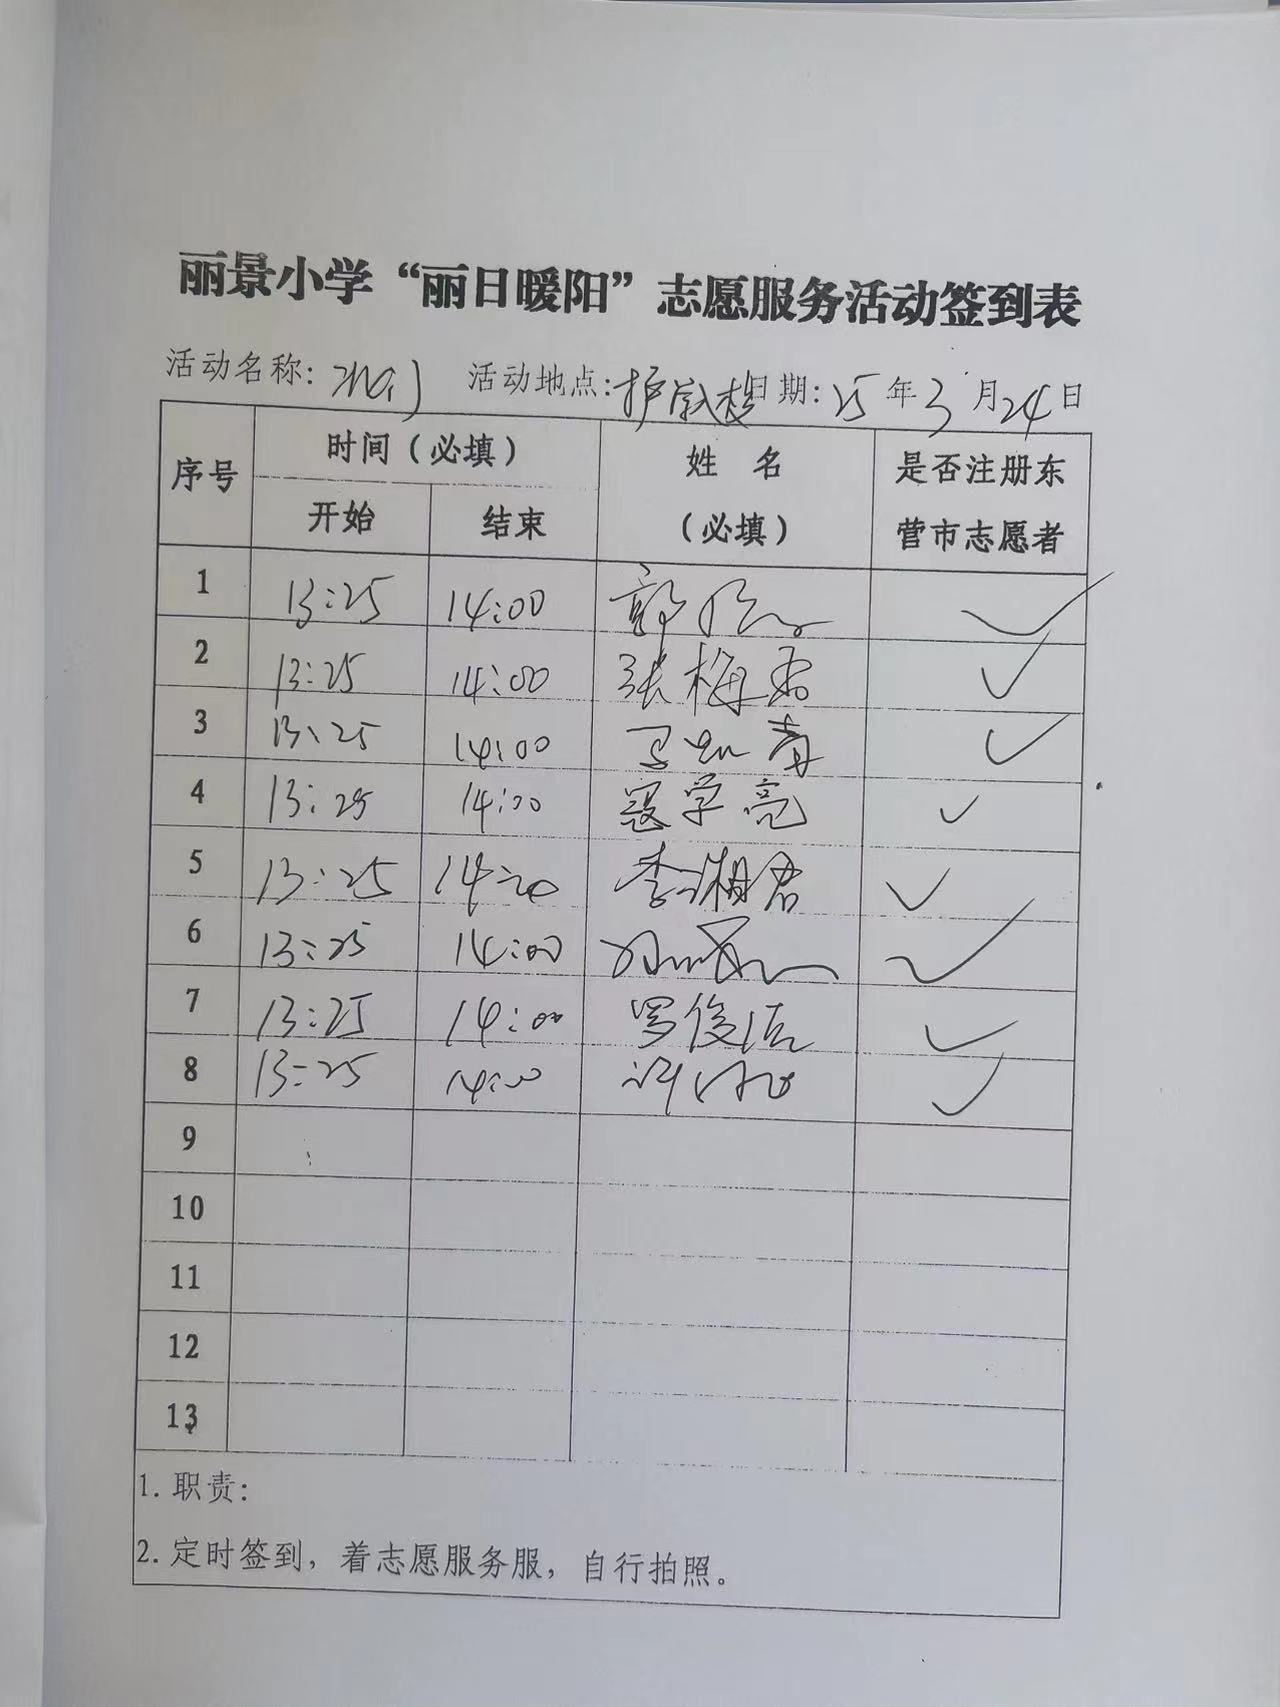 丽景小学“丽日暖阳”志愿服务活动签到表
活动名称: 活动地点: 日期: 25年3月24日
序号 时间（必填） 姓 名（必填） 是否注册东营市志愿者
开始 结束
1 13:25 14:00 郭
2 13:25 14:00 张梅
3 13:25 14:00
4 13:25 14:00 寇学亮
5 13:25 李湘君
6 13:25 14:00
7 13:25 14:00 罗俊洁
8 13:25 14:00 许
9
10
11
12
13
1. 职责:
2. 定时签到，着志愿服务服，自行拍照。